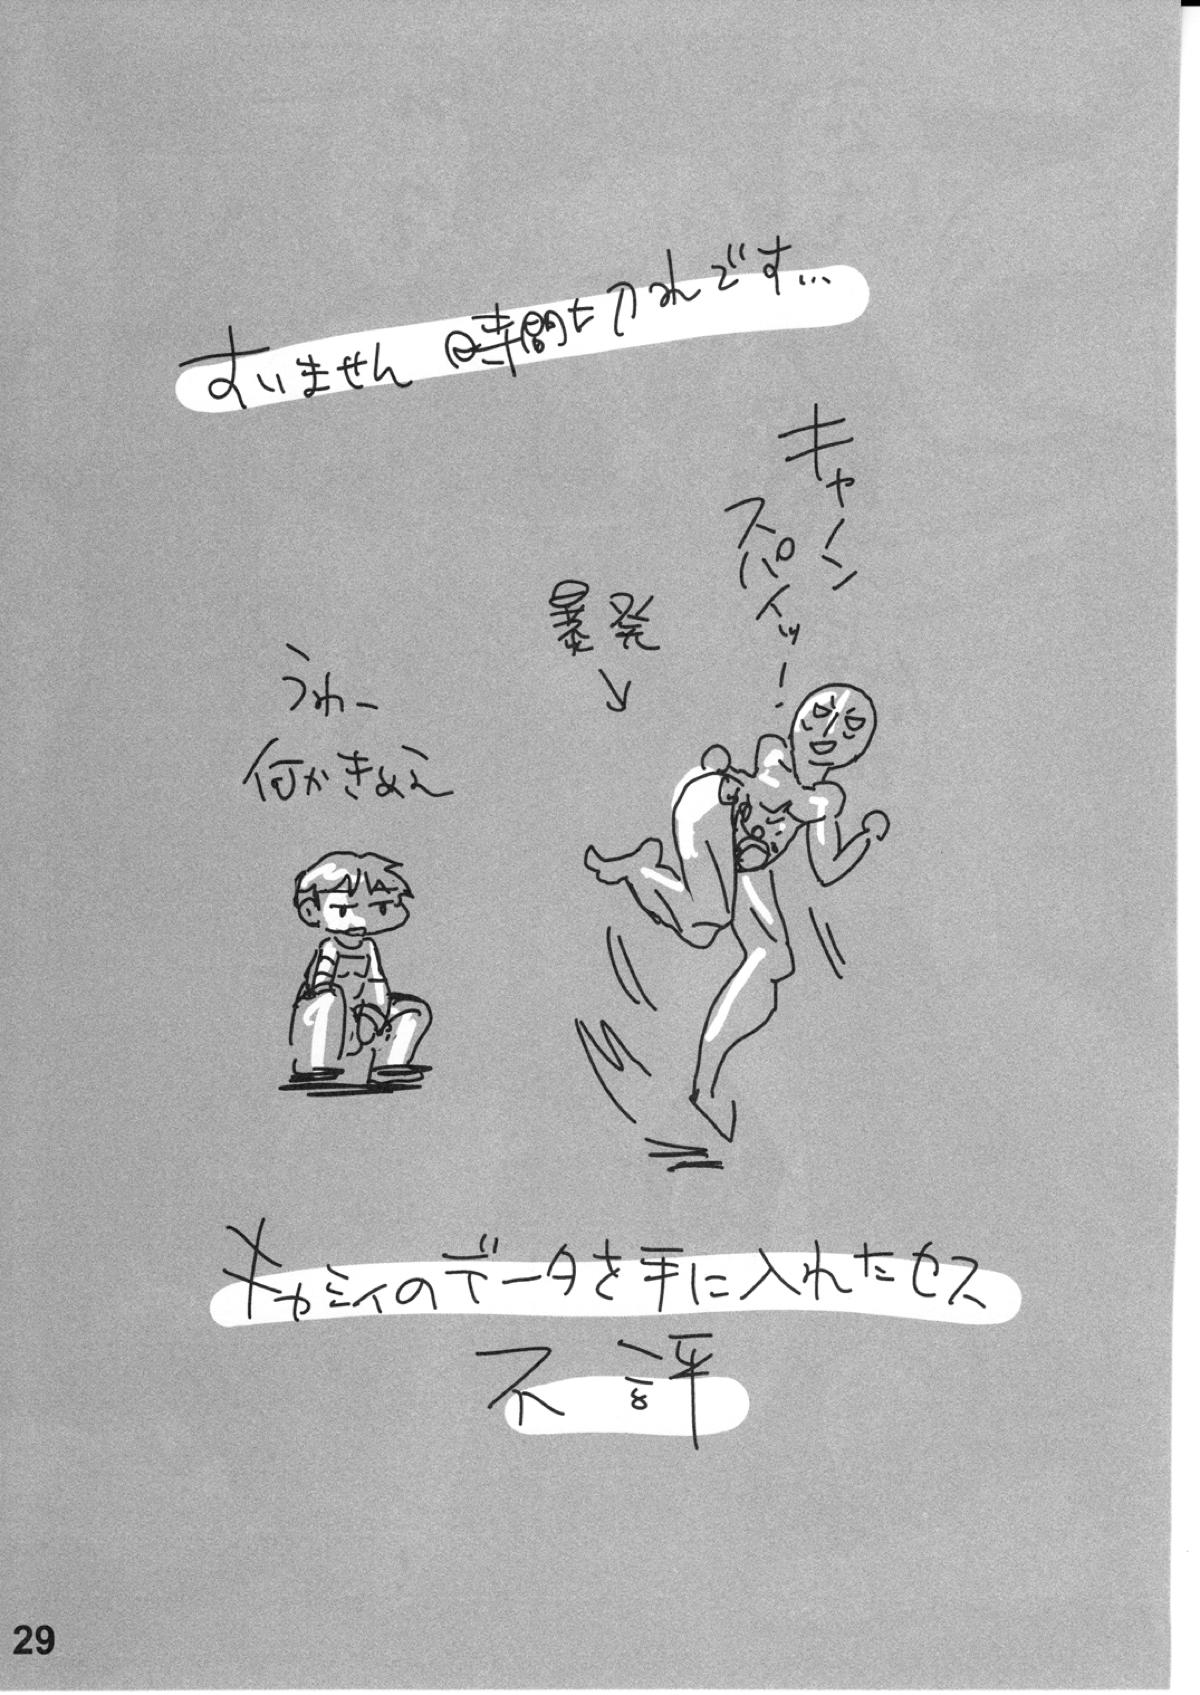 すいません 時間切れです…
キャノン
スパイッ!
暴発
うわー
何かきめえ
メカミィのデータを手に入れたセス
不評
29